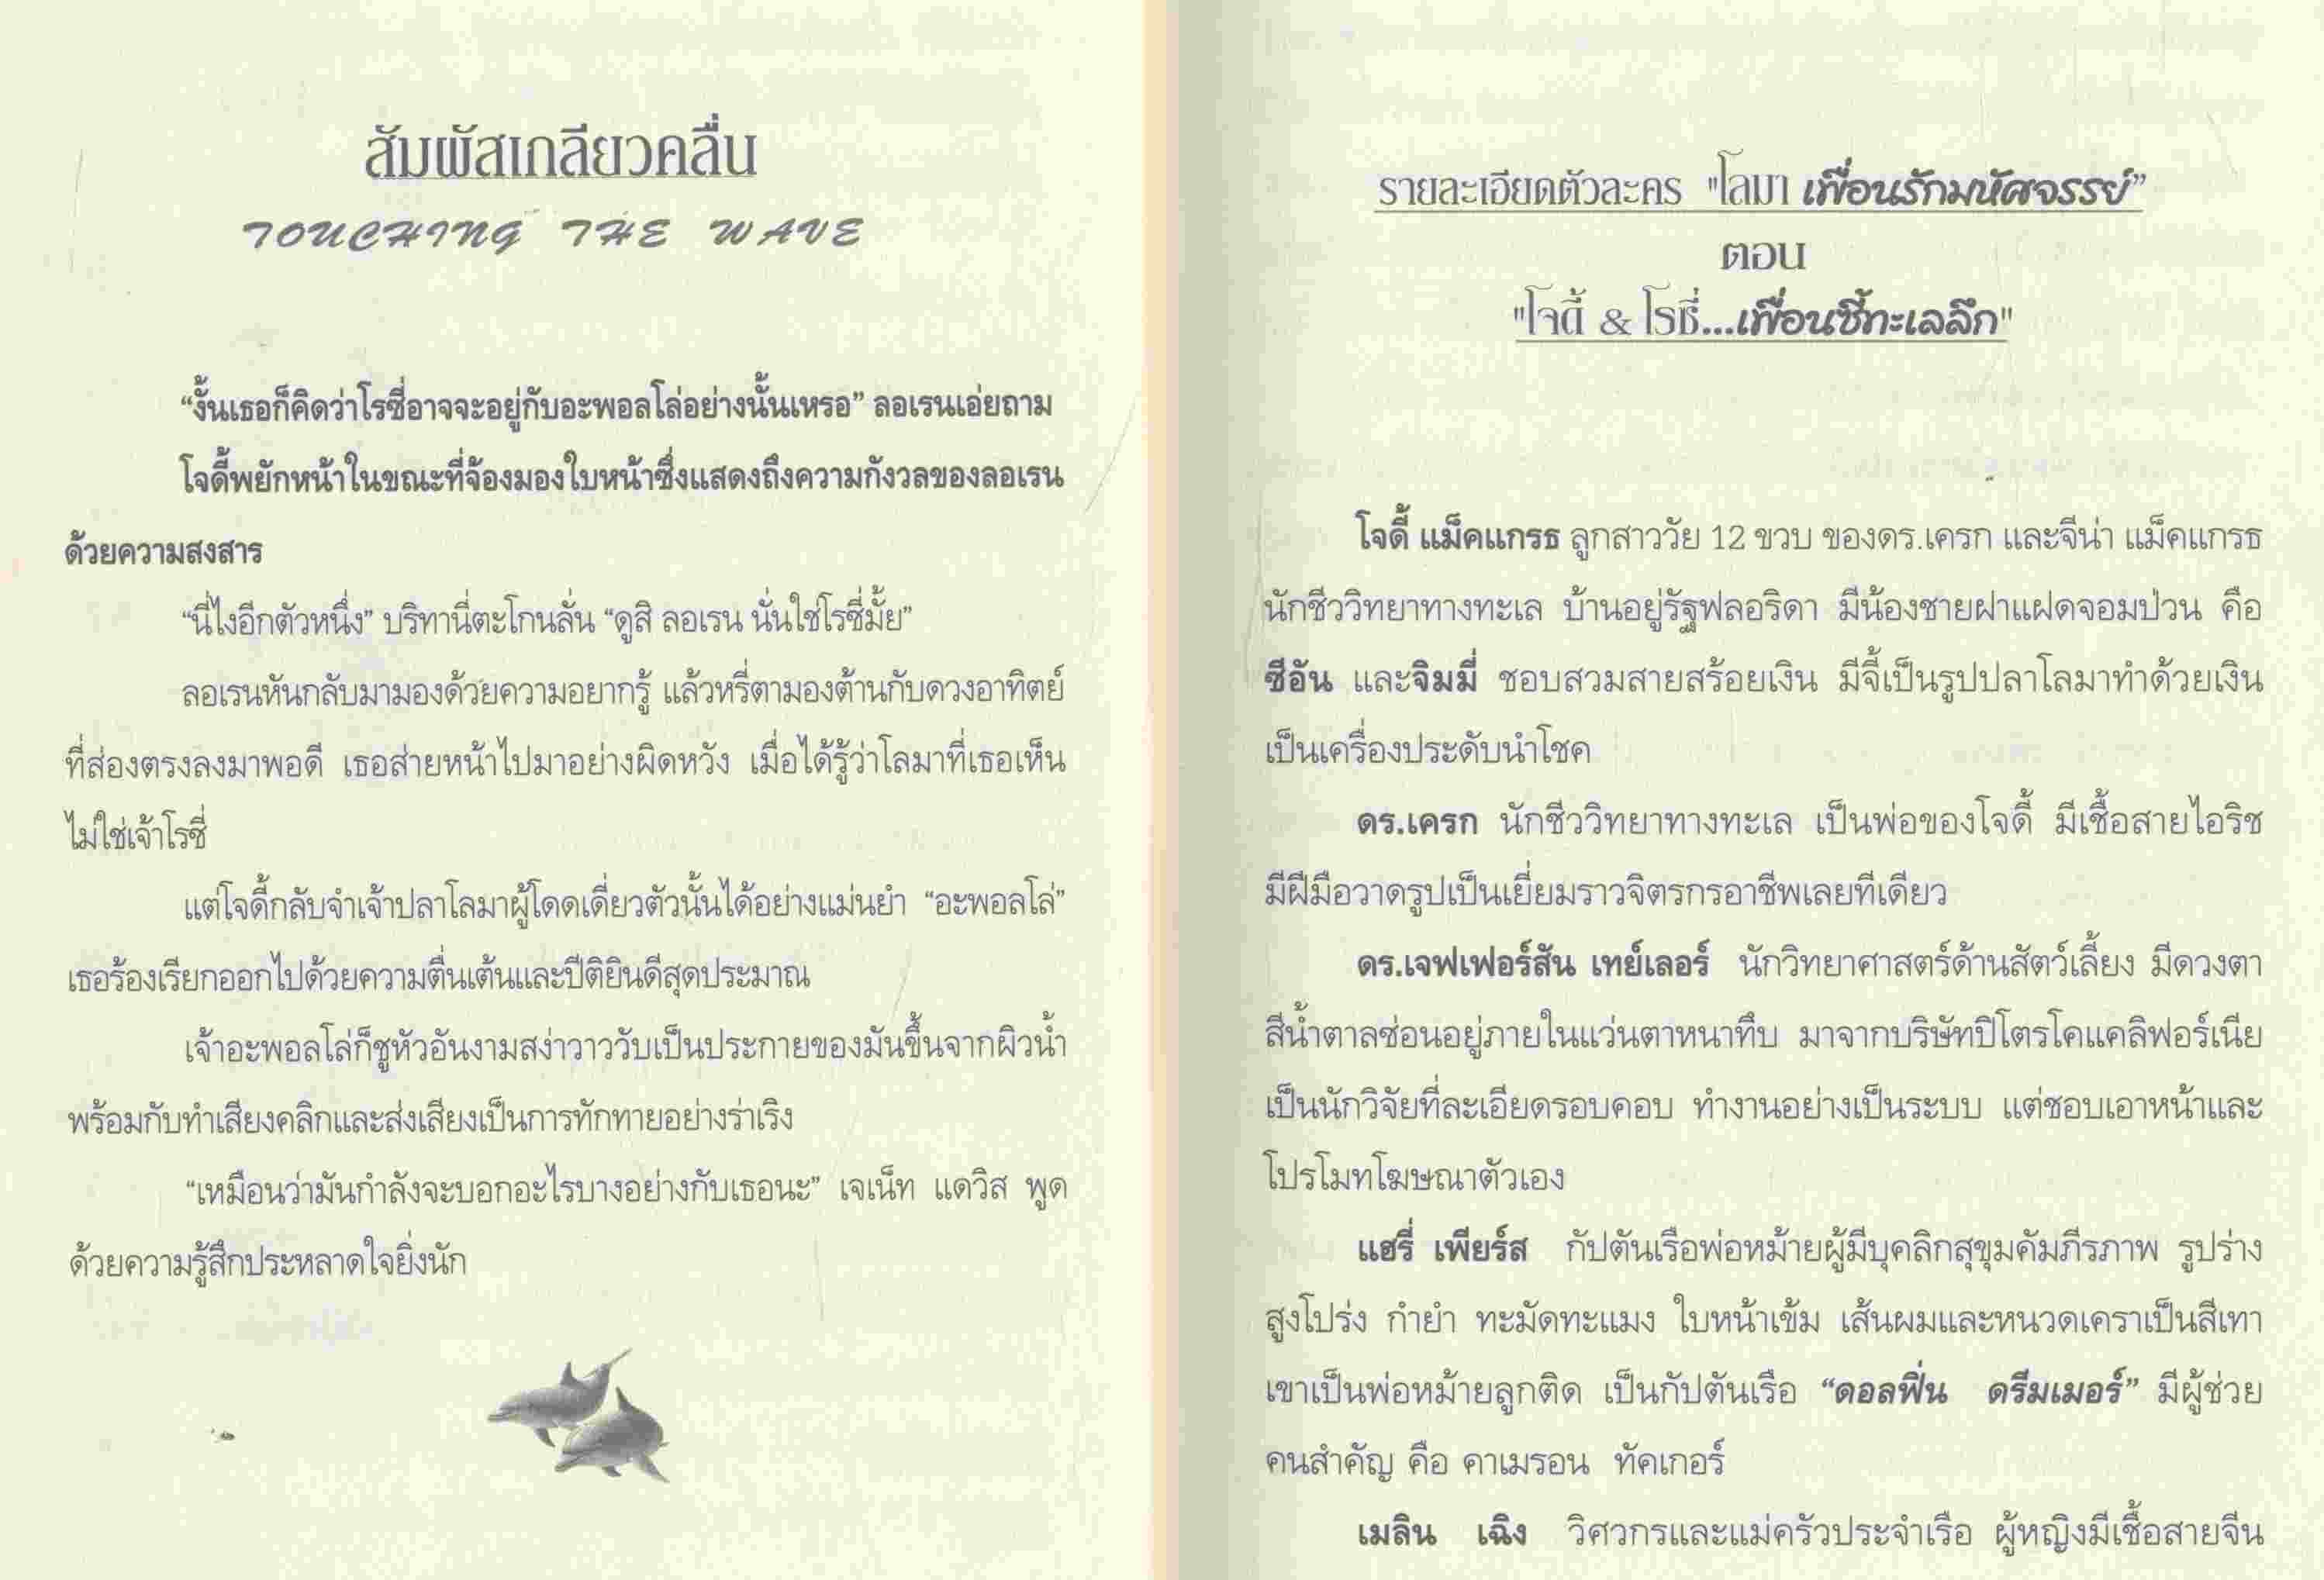 สัมผัสเกลียวคลื่น
TOUCHING THE WAVE
“งั้นเธอก็คิดว่าโรซี่อาจจะอยู่กับอะพอลโล่อย่างนั้นเหรอ” ลอเรนเอ่ยถาม
โจดี้พยักหน้าในขณะที่จ้องมองใบหน้าซึ่งแสดงถึงความกังวลของลอเรน
ด้วยความสงสาร
“นี่ไงอีกตัวหนึ่ง” บริทานี่ตะโกนลั่น “ดูสิ ลอเรน นั่นใช่โรซี่มั้ย”
ลอเรนหันกลับมามองด้วยความอยากรู้ แล้วหรี่ตามองต้านกับดวงอาทิตย์
ที่ส่องตรงลงมาพอดี เธอส่ายหน้าไปมาอย่างผิดหวัง เมื่อได้รู้ว่าโลมาที่เธอเห็น
ไม่ใช่เจ้าโรซี่
แต่โจดี้กลับจำเจ้าปลาโลมาผู้โดดเดี่ยวตัวนั้นได้อย่างแม่นยำ “อะพอลโล่”
เธอร้องเรียกออกไปด้วยความตื่นเต้นและปีติยินดีสุดประมาณ
เจ้าอะพอลโล่ก็ชูหัวอันงามสง่าวาววับเป็นประกายของมันขึ้นจากผิวน้ำ
พร้อมกับทำเสียงคลิกและส่งเสียงเป็นการทักทายอย่างร่าเริง
“เหมือนว่ามันกำลังจะบอกอะไรบางอย่างกับเธอนะ” เจเน็ท แดวิส พูด
ด้วยความรู้สึกประหลาดใจยิ่งนัก
รายละเอียดตัวละคร "โลมา เพื่อนรักมหัศจรรย์”
ตอน
"โจดี้ & โรซี่...เพื่อนซี้ทะเลลึก"
โจดี้ แม็คแกรธ ลูกสาววัย 12 ขวบ ของดร.เครก และจีน่า แม็คแกรธ
นักชีววิทยาทางทะเล บ้านอยู่รัฐฟลอริดา มีน้องชายฝาแฝดจอมป่วน คือ
ซีอัน และจิมมี่ ชอบสวมสายสร้อยเงิน มีจี้เป็นรูปปลาโลมาทำด้วยเงิน
เป็นเครื่องประดับนำโชค
ดร.เครก นักชีววิทยาทางทะเล เป็นพ่อของโจดี้ มีเชื้อสายไอริช
มีฝีมือวาดรูปเป็นเยี่ยมราวจิตรกรอาชีพเลยทีเดียว
ดร.เจฟเฟอร์สัน เทย์เลอร์ นักวิทยาศาสตร์ด้านสัตว์เลี้ยง มีดวงตา
สีน้ำตาลซ่อนอยู่ภายในแว่นตาหนาทึบ มาจากบริษัทปิโตรโคแคลิฟอร์เนีย
เป็นนักวิจัยที่ละเอียดรอบคอบ ทำงานอย่างเป็นระบบ แต่ชอบเอาหน้าและ
โปรโมทโฆษณาตัวเอง
แฮรี่ เพียร์ส กัปตันเรือพ่อหม้ายผู้มีบุคลิกสุขุมคัมภีรภาพ รูปร่าง
สูงโปร่ง กำยำ ทะมัดทะแมง ใบหน้าเข้ม เส้นผมและหนวดเคราเป็นสีเทา
เขาเป็นพ่อหม้ายลูกติด เป็นกัปตันเรือ “ดอลฟิ่น ดรีมเมอร์” มีผู้ช่วย
คนสำคัญ คือ คาเมรอน ทัคเกอร์
เมลิน เฉิง วิศวกรและแม่ครัวประจำเรือ ผู้หญิงมีเชื้อสายจีน